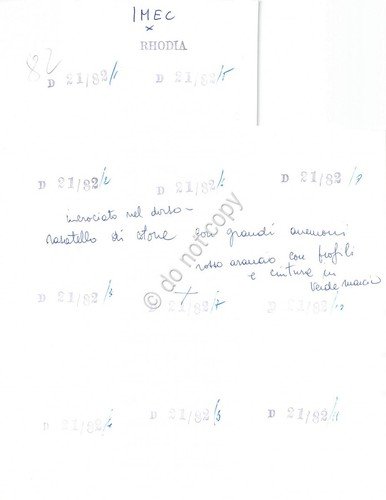 IMEC
x
RHODIA
82
D 21/82/1 D 21/82/5
D 21/82/2 D 21/82/6 D 21/82/9
incrociato nel dorso -
rasatello di cotone con grandi anemoni
rosso arancio con profili
e cintura in
verde marcio
D 21/82/3 D 21/82/7 D 21/82/10
D 21/82/4 D 21/82/8 D 21/82/11
© do not copy